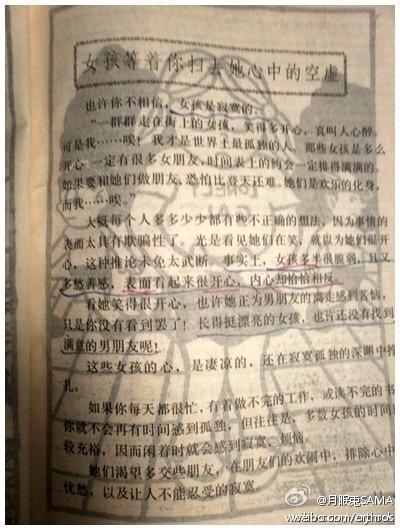 女孩等着你扫去她心中的空虚
也许你不相信,女孩是寂寞的。
“一群群走在街上的女孩,笑得多开心,真叫人心醉。
可是我……唉!我才是世界上最孤独的人。那些女孩是多么
开心 一定有很多女朋友,时间表上的约会一定排得满满的。
如果要和她们做朋友,恐怕比登天还难。她们是欢乐的化身,
而我……唉。”
大概每个人多多少少都有些不正确的想法,因为事情的
表面太具有欺骗性了。光是看见她们在笑,就以为她们很开
心,这种推论未免太武断。事实上,女孩多半很脆弱,且又
多愁善感,表面看起来很开心,内心却恰恰相反。
看她笑得很开心,也许她正为男朋友的离走感到苦恼,
只是你没有看到罢了!长得挺漂亮的女孩,也许还没有找到
满意的男朋友呢!
这些女孩的心,是凄凉的,还在寂寞孤独的深渊中挣
扎。
如果你每天都很忙,有着做不完的工作,或读不完的书
你就不会再有时间感到孤独,但往往是,多数女孩的时间
较充裕,因而闲着时就会感到寂寞、烦恼。
她们渴望多交些朋友,在朋友们的欢闹中,排除心中
忧愁,以及让人不能忍受的寂寞
@月眠兔SAMA
weibo.com/